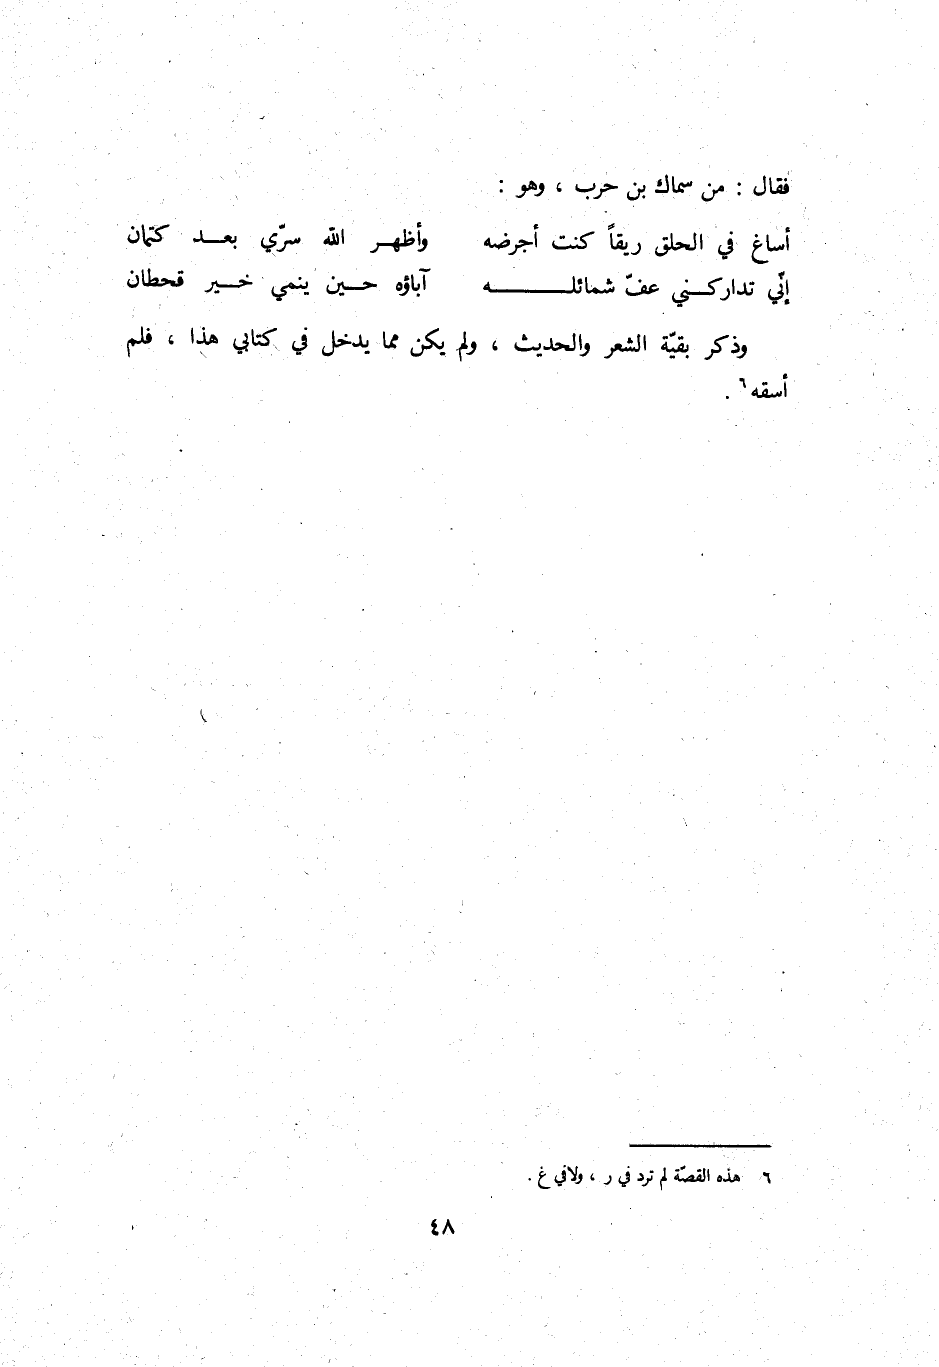 فقال : من سماك بن حرب ، وهو :
أساغ في الحلق ريقاً كنت أجرضه وأظهـر الله سرّي بعـد كتمان
إنّي تداركـني عفّ شمائلـــه آباؤه حـين ينمي خـير قحطان
وذكر بقيّة الشعر والحديث ، ولم يكن مما يدخل في كتابي هذا ، فلم
أسقه٦ .
٦ هذه القصّة لم ترد في ر ، ولا في غ .
٤٨